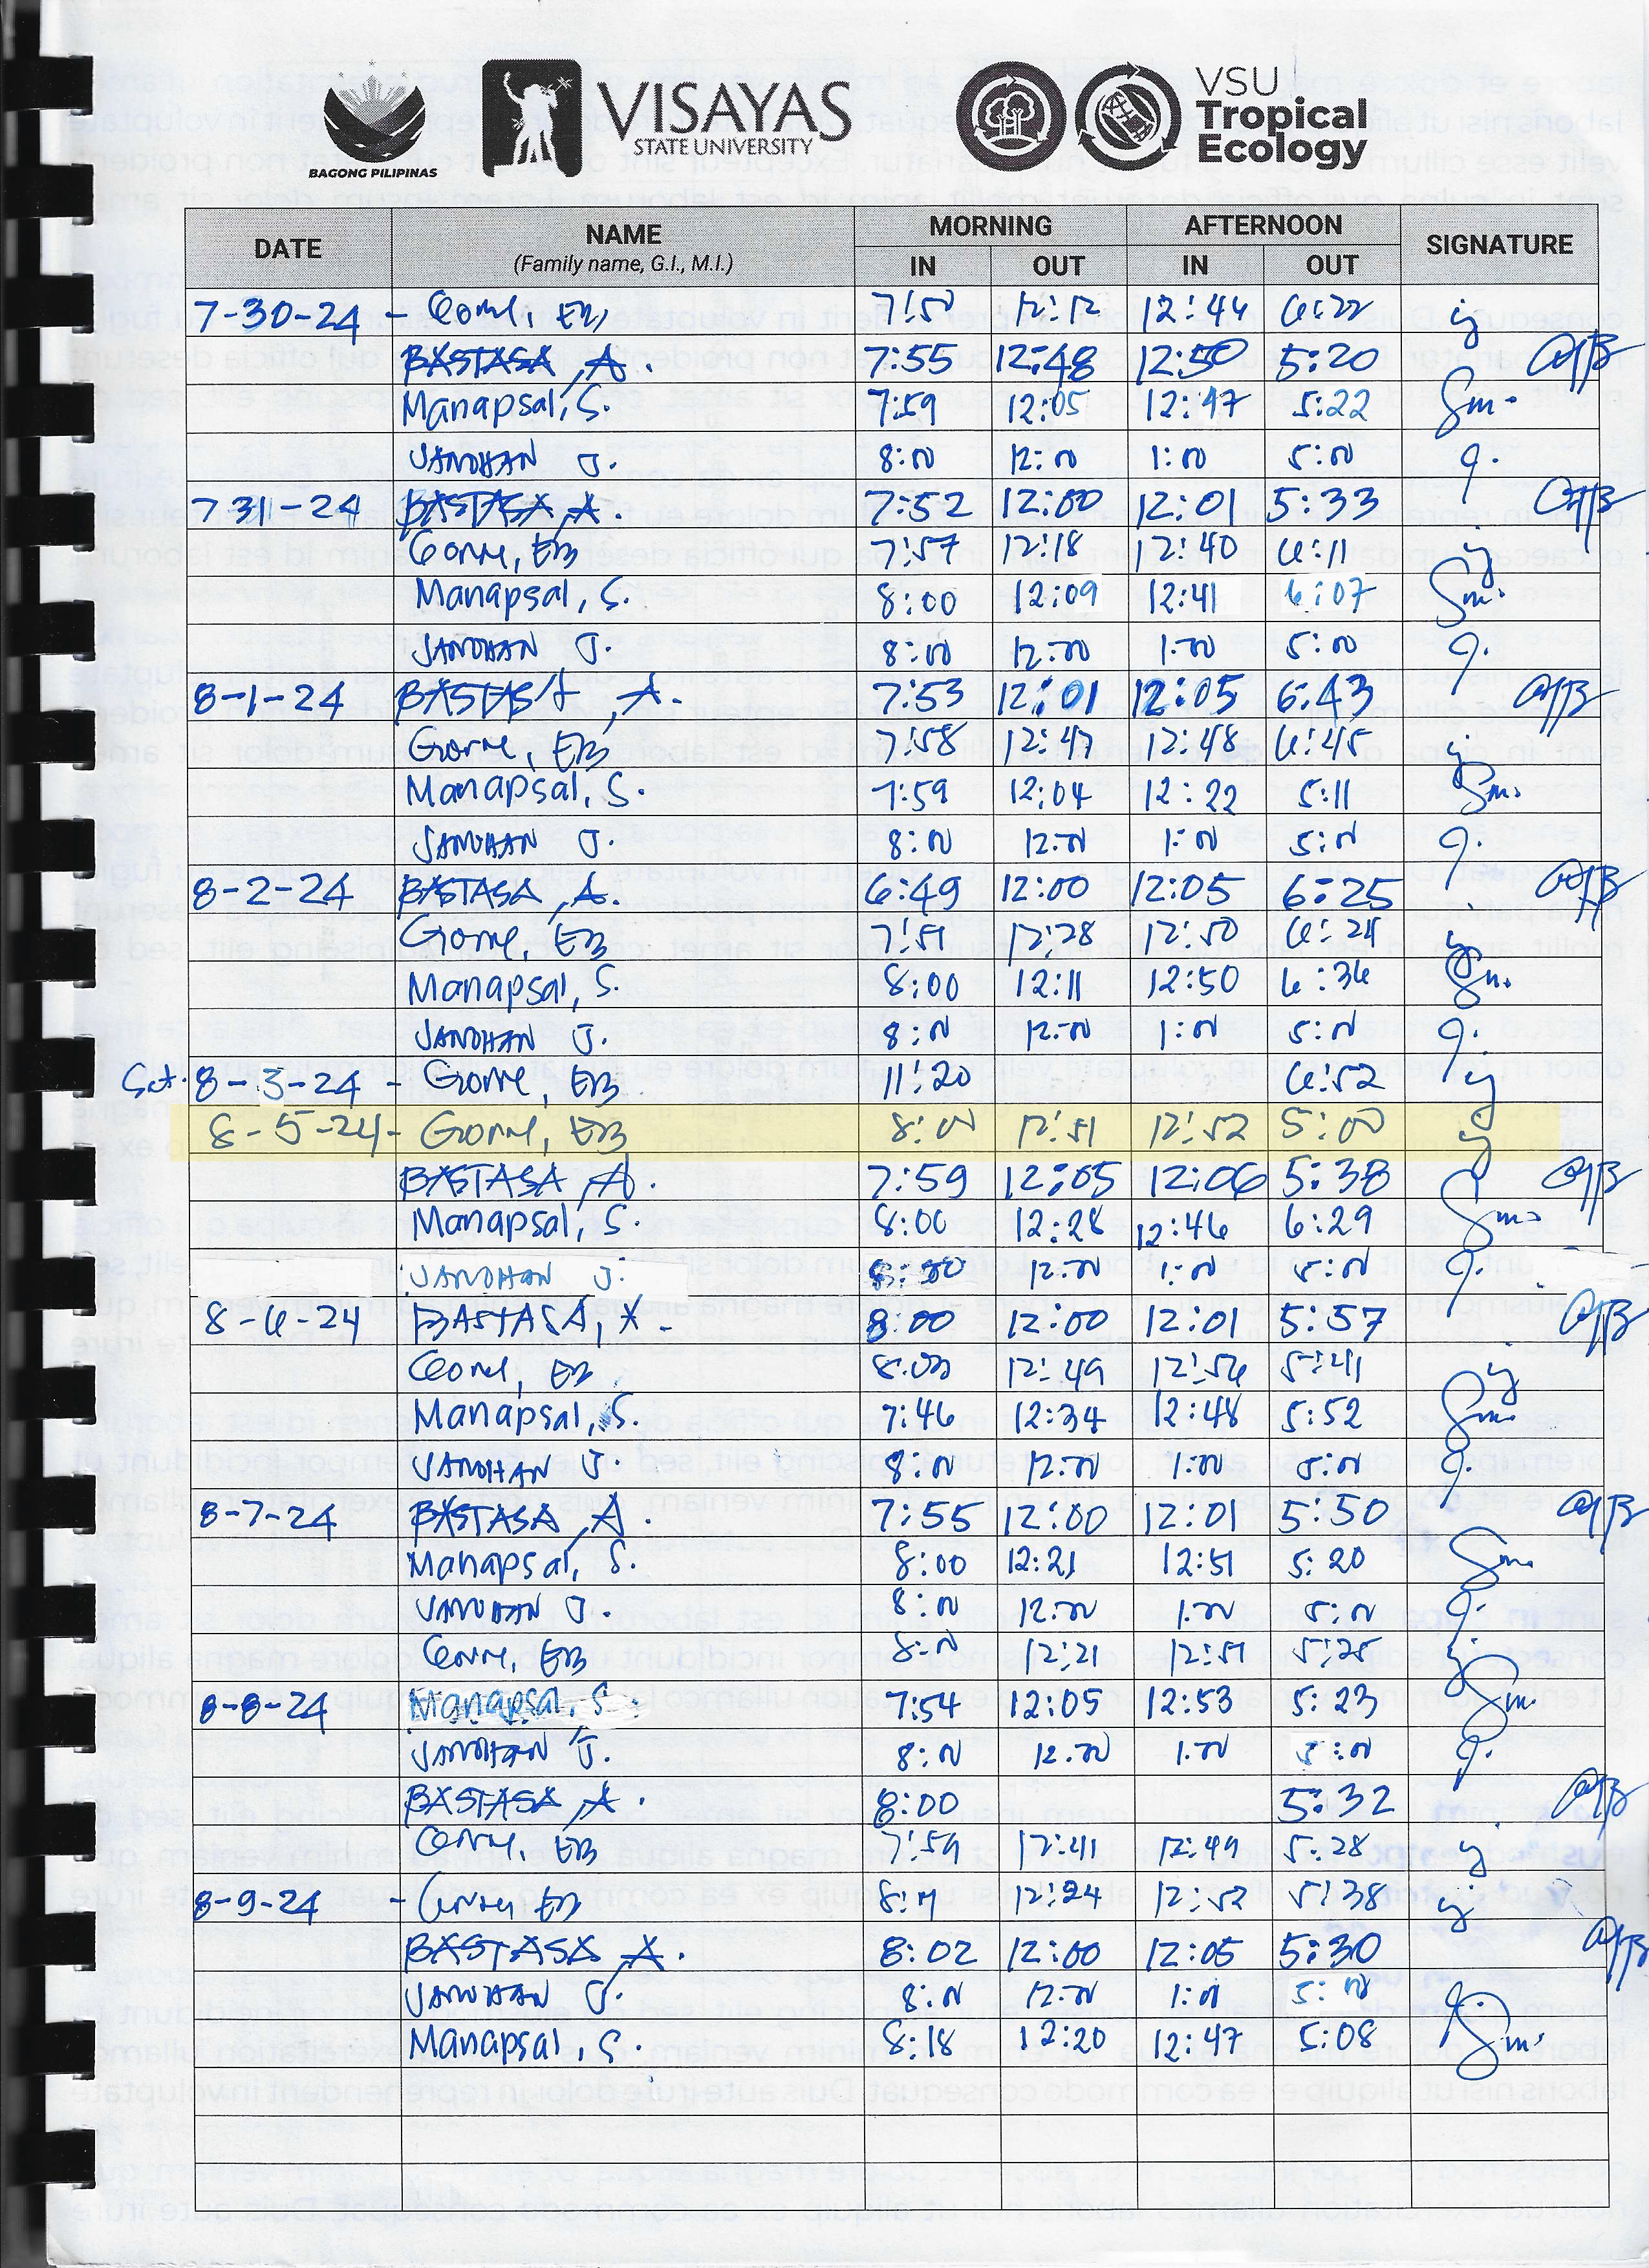 BAGONG PILIPINAS
VISAYAS
STATE UNIVERSITY
VSU
Tropical
Ecology
DATE NAME (Family name, G.I., M.I.) MORNING AFTERNOON SIGNATURE
IN OUT IN OUT
7-30-24 - Gorne, EB 12:12 12:44 6:22
BASTASA, A. 7:55 12:48 12:50 5:20
Manapsal, S. 7:59 12:05 12:47 5:22 Sm.
JANDHAN J. 8:00 12:00 1:00 5:00 J.
7-31-24 BASTASA, A. 7:52 12:00 12:01 5:33
Gorne, EB 7:57 12:18 12:40 6:11
Manapsal, S. 8:00 12:09 12:41 6:07 Sm.
JANDHAN J. 8:00 12:00 1:00 5:00 J.
8-1-24 BASTASA, A. 7:53 12:01 12:05 6:43
Gorne, EB 7:58 12:47 12:48 6:45
Manapsal, S. 7:59 12:04 12:22 5:11 Sm.
JANDHAN J. 8:00 12:00 1:00 5:00 J.
8-2-24 BASTASA, A. 6:49 12:00 12:05 6:25
Gorne, EB 7:51 12:28 12:50 6:24
Manapsal, S. 8:00 12:11 12:50 6:36 Sm.
JANDHAN J. 8:00 12:00 1:00 5:00 J.
Sat. 8-3-24 - Gorne, EB 11:20 6:52
8-5-24 - Gorne, EB 8:00 12:51 12:52 5:00
BASTASA, A. 7:59 12:05 12:06 5:38
Manapsal, S. 8:00 12:28 12:46 6:29 Sm.
JANDHAN J. 8:00 12:00 1:00 5:00 J.
8-6-24 BASTASA, A. 8:00 12:00 12:01 5:57
Gorne, EB 8:00 12:49 12:56 5:41
Manapsal, S. 7:46 12:34 12:48 5:52 Sm.
JANDHAN J. 8:00 12:00 1:00 5:00 J.
8-7-24 BASTASA, A. 7:55 12:00 12:01 5:50
Manapsal, S. 8:00 12:21 12:51 5:20 Sm.
JANDHAN J. 8:00 12:00 1:00 5:00 J.
Gorne, EB 8:00 12:21 12:51 5:25
8-8-24 Manapsal, S. 7:54 12:05 12:53 5:23 Sm.
JANDHAN J. 8:00 12:00 1:00 5:00 J.
BASTASA, A. 8:00 5:32
Gorne, EB 7:59 12:41 12:49 5:28
8-9-24 - Gorne EB 12:24 12:52 5:38
BASTASA, A. 8:02 12:00 12:05 5:30
JANDHAN J. 8:00 12:00 1:00 5:00 J.
Manapsal, S. 8:18 12:20 12:47 5:08 Sm.